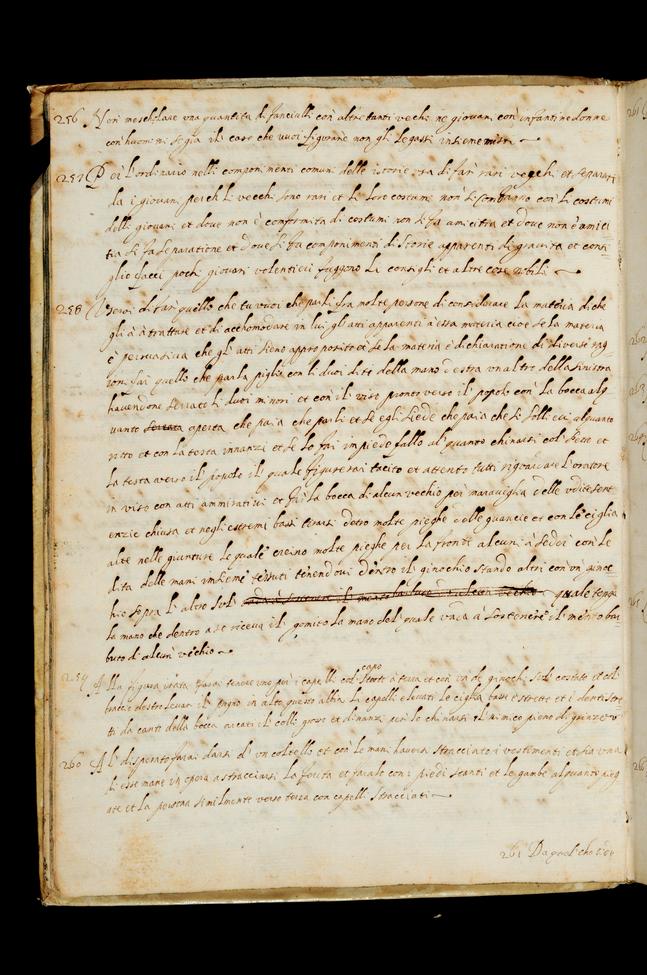 256 Non meschilare una quantita di fanciulli con altre tanti vechi ne giovani con infanti ne donne
con huomini se gia il caso che vuoi figurare non gli legassi insieme misti
257 Per l'ordinario nelli componimenti comuni delle istorie usa di far rari vecchi et separati
da i giovani perch li vecchi sono rari et li loro costumi non si confanno con li costumi
delli giovani et dove non è conformita di costumi non si fa amicitia et dove non è amici
tia si fa separatione et dove si fa componimenti di storie apparenti di gravita et consi
glio facci pochi giovani volentieri fuggono li consigli et altre cose nobili
258 Usarai di far quello che tu vuoi che parli fra molte persone di considerare la materia di che
gli à à trattare et di accomodare in lui gli atti apparenti à essa materia cioe se la materia
è persuasiva che gli atti sieno approposito et se la materia è dichiaratione di diverse rag
ioni fai quello che parla piglie con li duoi dita della mano destra un altro della sinistra
havendone serrato li duoi minori et con il viso pronto verso il popolo con la bocca alq
uanto aperta che paia che parli et se egli siede che paia che si sollievi alquanto
ritto et con la testa innanzi et se lo fai in piede fallo alquanto chinarsi col petto et
la testa averso il popolo il quale figurerai tacito et attento tutti riguardare l'oratore
in viso con atti ammirativi et fa la bocca di alcun vechio per maraviglia delle udite sent
enzie chiusa et negli estremi bassi tirarsi dietro molte pieghe delle guancie et con le ciglia
alte nelle giunture le quale creino molte pieghe per la fronte alcuni à sedere con le
dita delle mani insieme tessuti tenendovi dentro il ginochio stando altri con un ginoc
hio sopra l altro sul quale tenga
la mano che dentro a se riceva il gomito la mano del quale vada à sostenere il mento bar
buto di alcun vechio
259 Alla figura irata farai tenere uno per i capelli col capo storto à terra et con un de ginochi sul costato et col
braccio destro levare il pugno in alto questo abbia li capelli elevati le ciglia basse e strette et i denti stre
tti da canti della bocca arcati il collo grosso et dinanzi per lo chinarsi al nimico pieno di grinze
260 Al disperato farai darsi d' un coltello et con le mani haversi stracciato i vestimenti et sia una
di esse mane in opera a stracciarsi la ferita et farailo con i piedi stanti et le gambe alquanto pieg
ate et la persona similmente verso terra con capelli stracciati
261 Da quel che